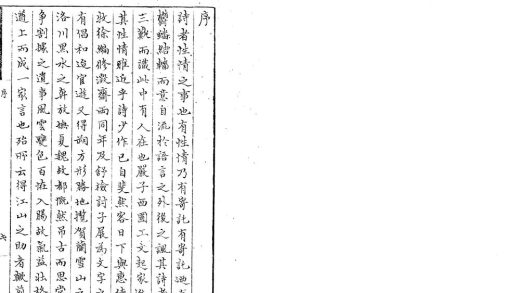 序
詩者性情之事也有性情乃有寄託有寄託迺
鬱蟠結轖而意自流於語言之外後之諷其詩者
三歎而識此中有人在也嚴子西園工文起家
其性情雖近乎詩少作已自斐然客日下與惠
敝徐編修澂齋西同年及舒檢討子展為文字之
有倡和迨宦遊又得朔方形勝地攬賀蘭雪山之
洛川黑水之奔放撫夏魏故都慨然弔古而思
爭割據之遺事風雲變色百恠入腸故氣益壯
道上而成一家言也殆所云得江山之助者
序